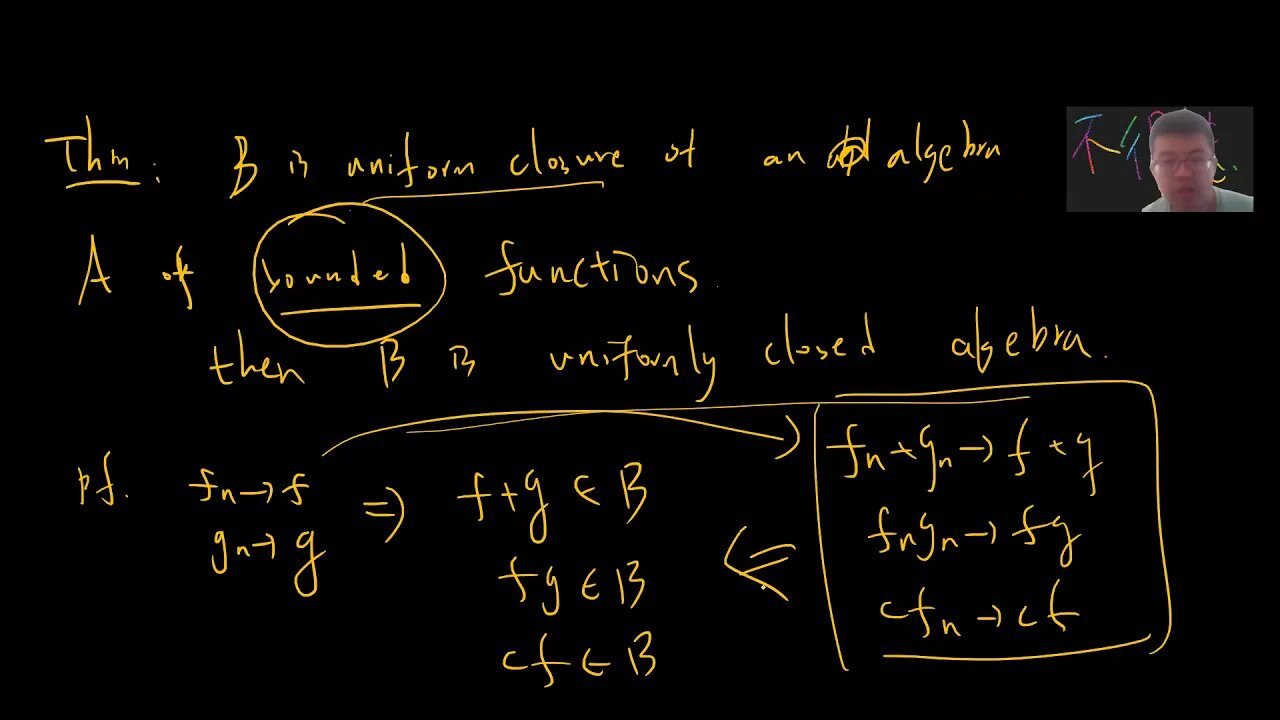 Thm: B is uniform closure of an algebra
A of bounded functions.
then B is uniformly closed algebra.
pf. fn → f
gn → g
⇒ f+g ∈ B
fg ∈ B
cf ∈ B
⇐
fn+gn → f+g
fngn → fg
cfn → cf
不